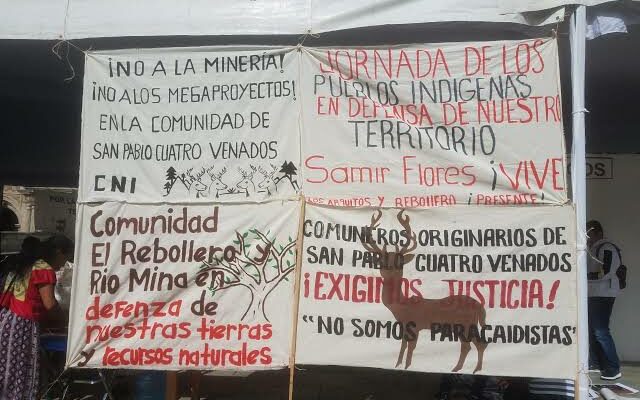 ¡NO A LA MINERÍA!
¡NO A LOS MEGAPROYECTOS!
EN LA COMUNIDAD DE
SAN PABLO CUATRO VENADOS
CNI
JORNADA DE LOS
PUEBLOS INDIGENAS
EN DEFENSA DE NUESTRO
TERRITORIO
Samir Flores ¡VIVE
LOS ARQUITOS Y REBOLLERO ¡PRESENTE!
Comunidad
El Rebollero y
Rio Mina en
defenza de
nuestras tierras
y recursos naturales
COMUNEROS ORIGINARIOS DE
SAN PABLO CUATRO VENADOS
¡EXIGIMOS JUSTICIA!
"NO SOMOS PARACAIDISTAS"